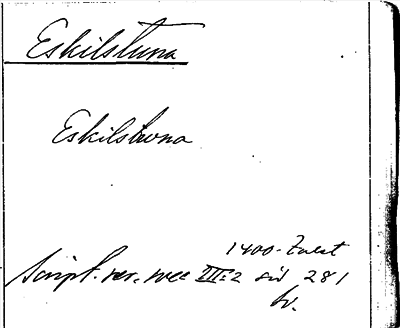 Eskilstuna
Eskilstuna
1400-talet
Script. rer. svec III:2 sid 281
br.